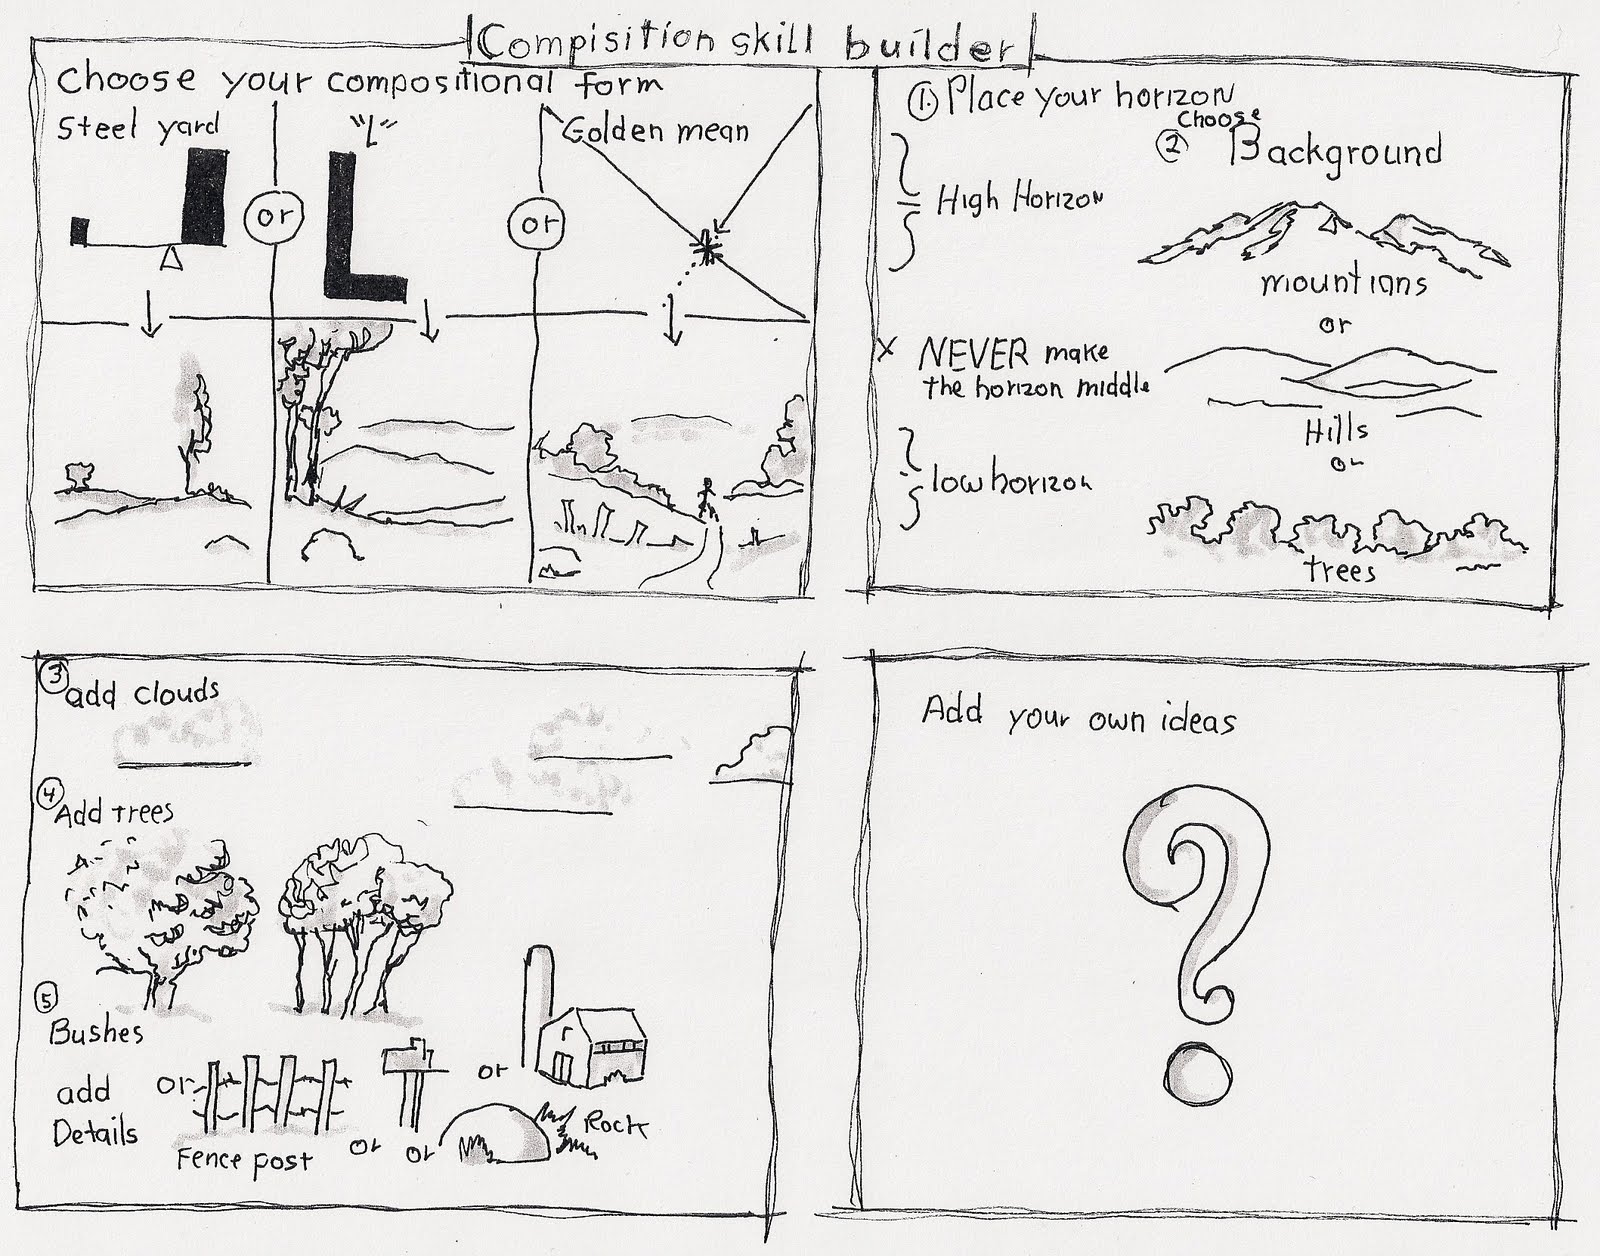 Compisition skill builder
Choose your compositional form
Steel yard
"L"
Golden mean
or
or
1. Place your horizon
Choose
2 Background
High Horizon
mountians
or
X NEVER make
the horizon middle
Hills
or
low horizon
trees
3 add clouds
4 Add trees
5 Bushes
add
Details
or
or
Rock
Fence post
or
or
Add your own ideas
?